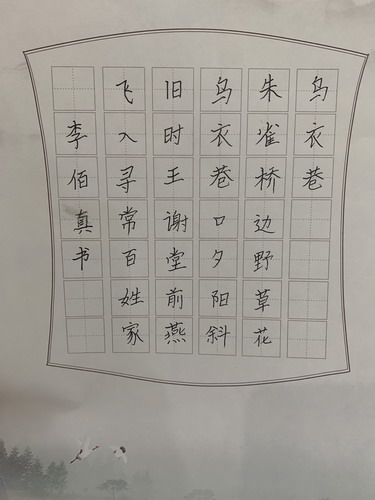 鸟衣巷
朱雀桥边野草花
鸟衣巷口夕阳斜
旧时王谢堂前燕
飞入寻常百姓家
李佰真书